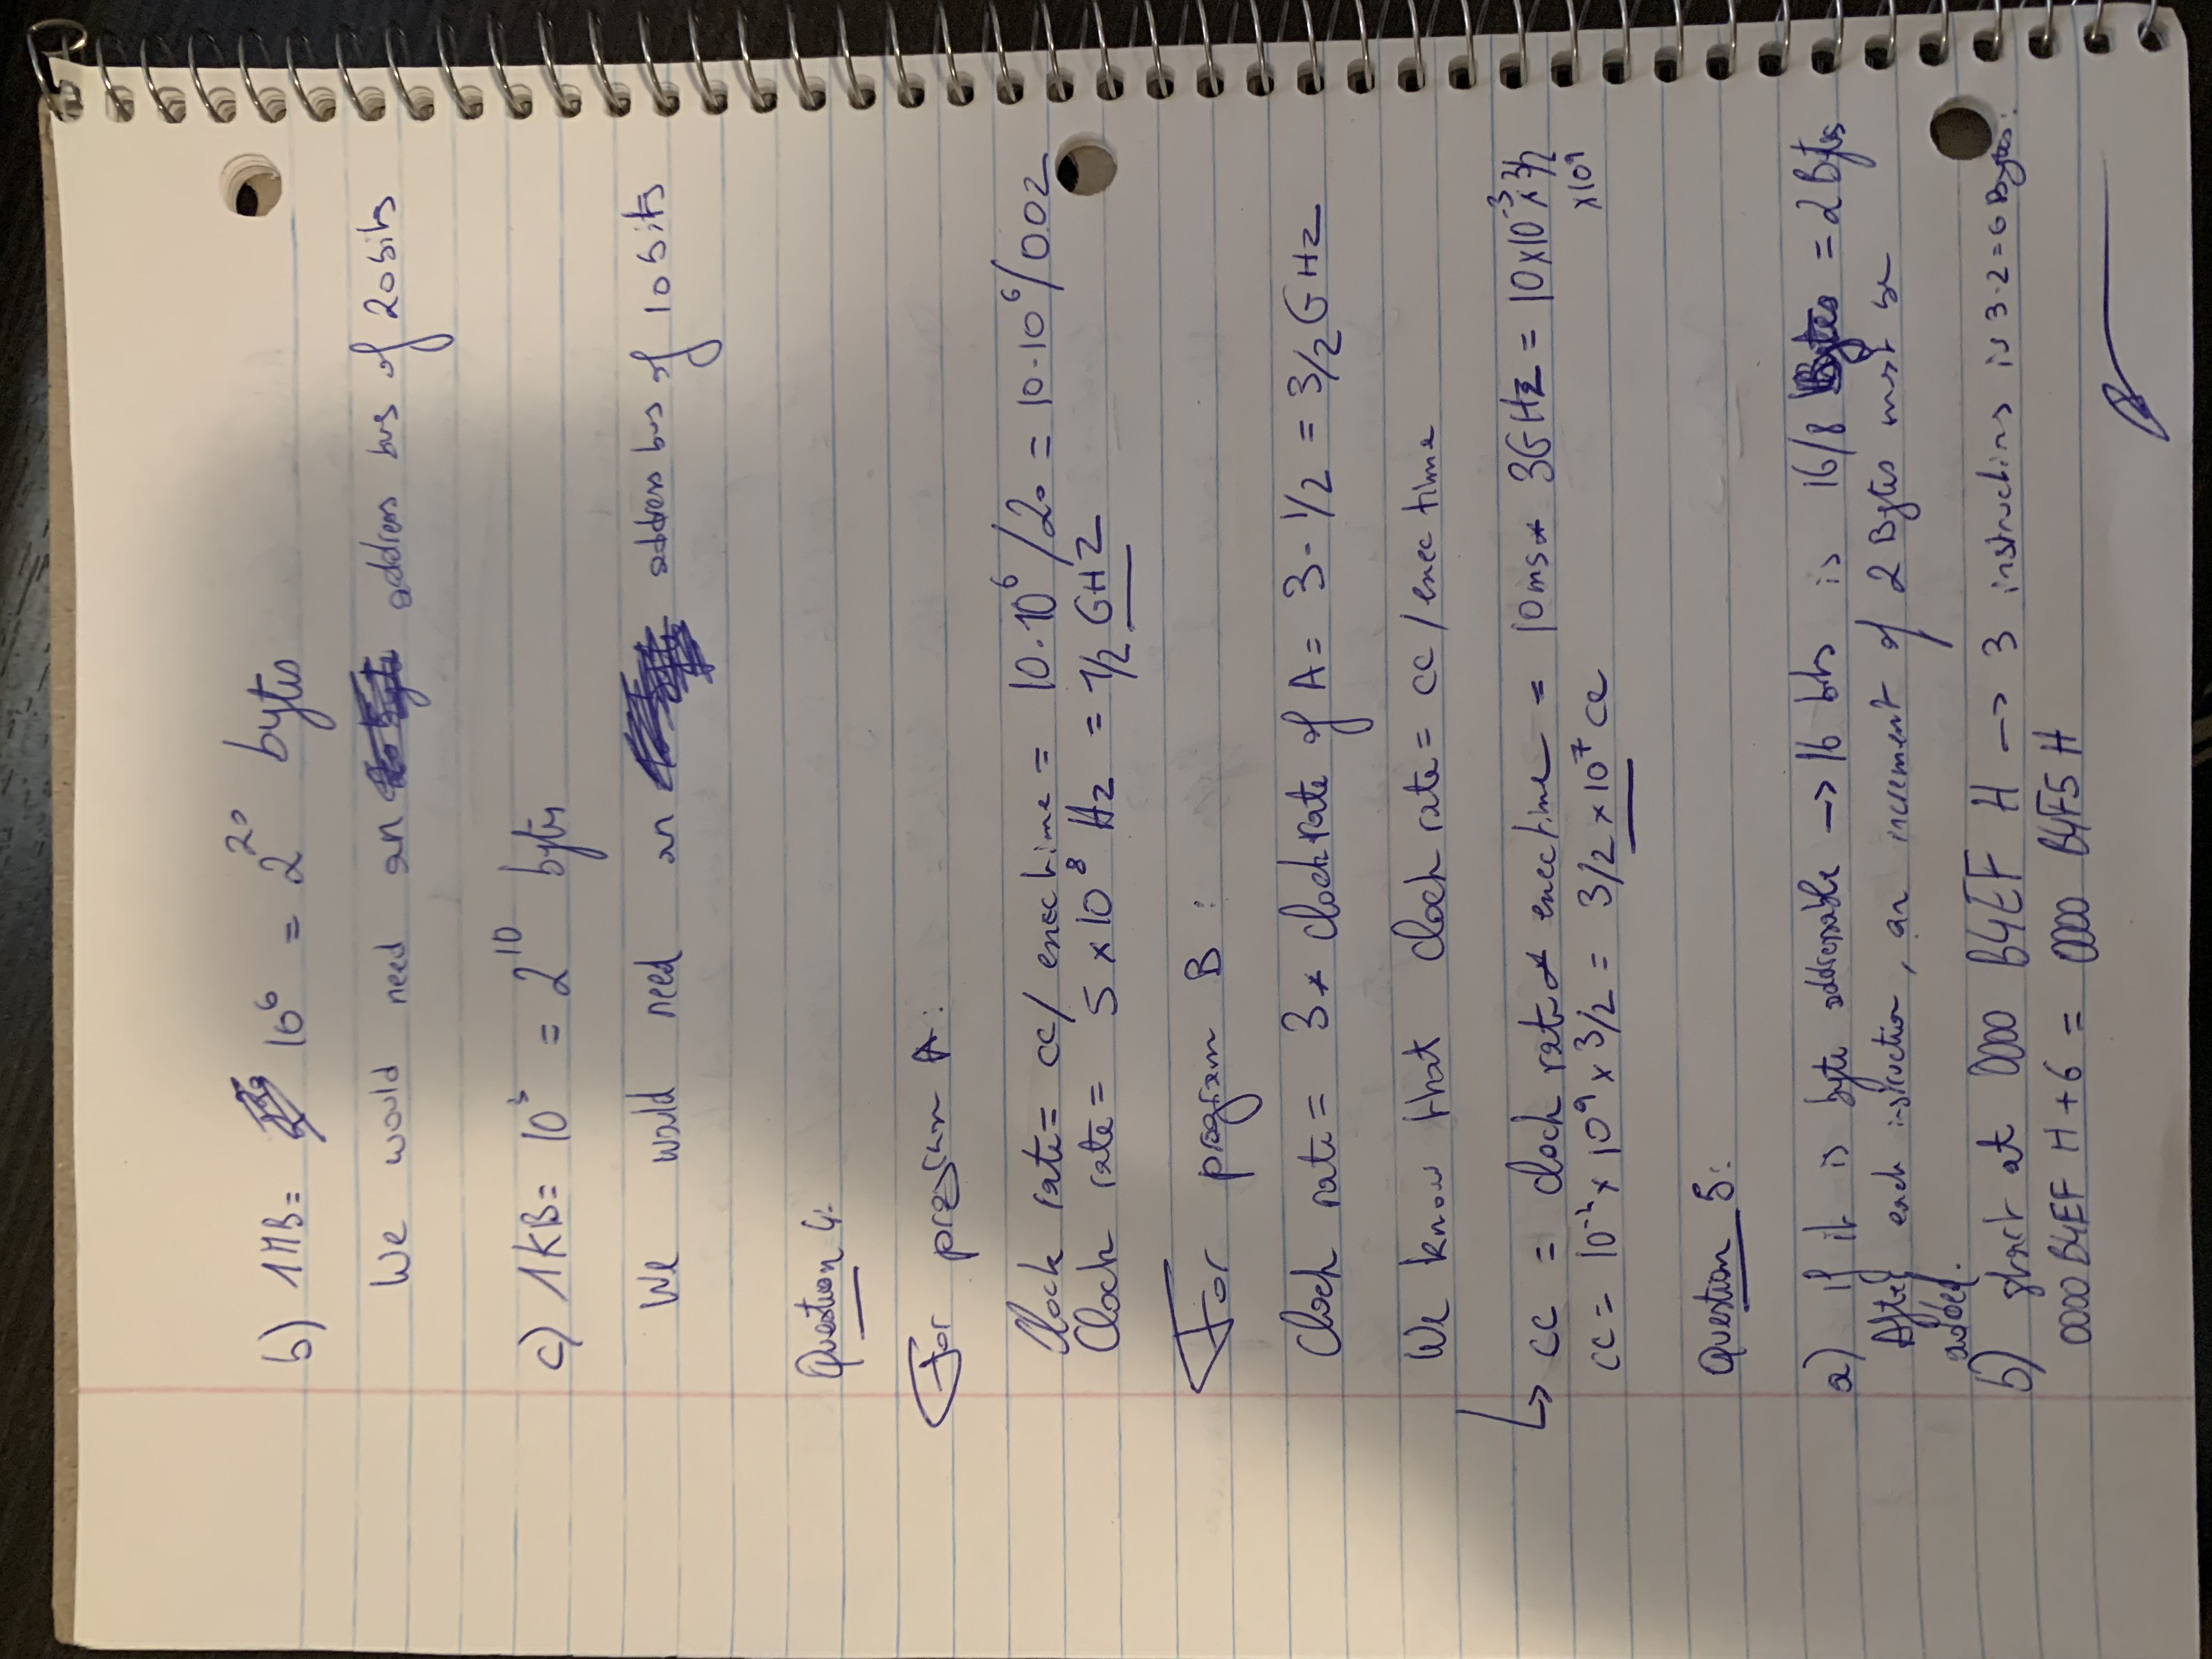 b) 1MB = 10⁶ = 2²⁰ bytes
We would need an address bus of 20 bits
c) 1KB = 10³ = 2¹⁰ bytes
We would need an address bus of 10 bits
Question 4:
For program A:
Clock rate = cc/ exec time = 10.10⁶/20 = 10.10⁶/0.02
Clock rate = 5 x 10⁸ Hz = 1/2 GHZ
For program B :
Clock rate = 3 * clock rate of A = 3 - 1/2 = 3/2 GHz
We know that clock rate = cc / exec time
↳ cc = clock rate * exec time = 10ms * 3GHz = 10x10⁻³ x 3/2
x10⁹
cc = 10⁻² x 10⁹ x 3/2 = 3/2 x 10⁷ cc
Question 5:
a) If it is byte addressable -> 16 bits is 16/8 Bytes = 2 Bytes
After each instruction, an increment of 2 Bytes must be
added.
b) start at 0000 B4EF H -> 3 instructions is 3.2 = 6 Bytes.
0000 B4EF H + 6 = 0000 B4F5 H